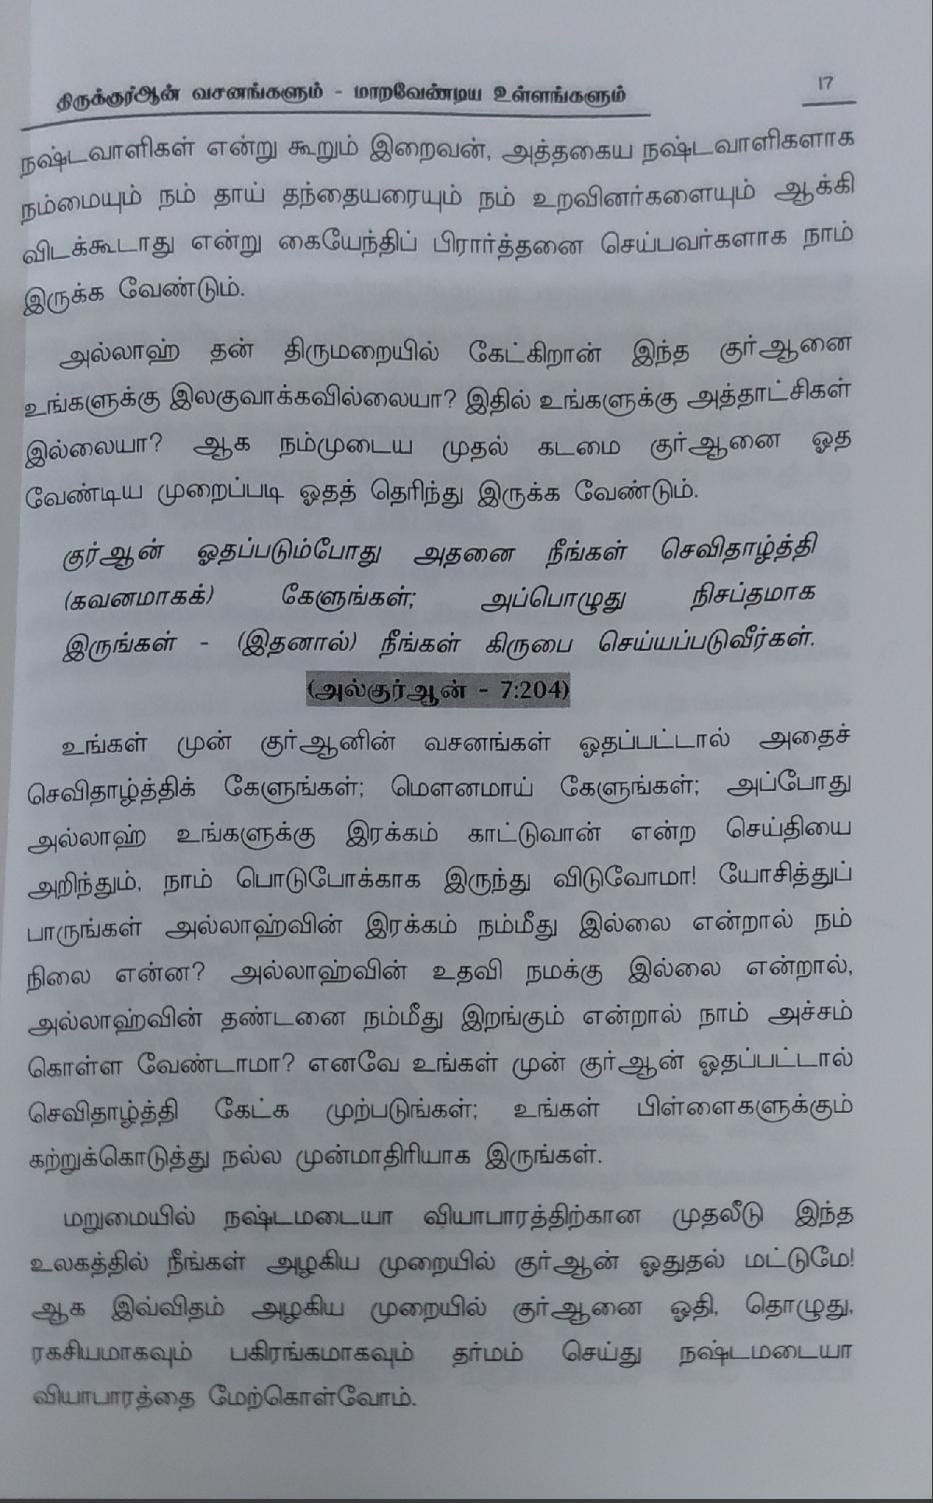 திருக்குர்ஆன் வசனங்களும் - மாறவேண்டிய உள்ளங்களும் 17
நஷ்டவாளிகள் என்று கூறும் இறைவன், அத்தகைய நஷ்டவாளிகளாக
நம்மையும் நம் தாய் தந்தையரையும் நம் உறவினர்களையும் ஆக்கி
விடக்கூடாது என்று கையேந்திப் பிரார்த்தனை செய்பவர்களாக நாம்
இருக்க வேண்டும்.
அல்லாஹ் தன் திருமறையில் கேட்கிறான் இந்த குர்ஆனை
உங்களுக்கு இலகுவாக்கவில்லையா? இதில் உங்களுக்கு அத்தாட்சிகள்
இல்லையா? ஆக நம்முடைய முதல் கடமை குர்ஆனை ஓத
வேண்டிய முறைப்படி ஓதத் தெரிந்து இருக்க வேண்டும்.
குர்ஆன் ஓதப்படும்போது அதனை நீங்கள் செவிதாழ்த்தி
(கவனமாகக்) கேளுங்கள்; அப்பொழுது நிசப்தமாக
இருங்கள் - (இதனால்) நீங்கள் கிருபை செய்யப்படுவீர்கள்.
(அல்குர்ஆன் - 7:204)
உங்கள் முன் குர்ஆனின் வசனங்கள் ஓதப்பட்டால் அதைச்
செவிதாழ்த்திக் கேளுங்கள்; மௌனமாய் கேளுங்கள்; அப்போது
அல்லாஹ் உங்களுக்கு இரக்கம் காட்டுவான் என்ற செய்தியை
அறிந்தும், நாம் பொடுபோக்காக இருந்து விடுவோமா! யோசித்துப்
பாருங்கள் அல்லாஹ்வின் இரக்கம் நம்மீது இல்லை என்றால் நம்
நிலை என்ன? அல்லாஹ்வின் உதவி நமக்கு இல்லை என்றால்,
அல்லாஹ்வின் தண்டனை நம்மீது இறங்கும் என்றால் நாம் அச்சம்
கொள்ள வேண்டாமா? எனவே உங்கள் முன் குர்ஆன் ஓதப்பட்டால்
செவிதாழ்த்தி கேட்க முற்படுங்கள்; உங்கள் பிள்ளைகளுக்கும்
கற்றுக்கொடுத்து நல்ல முன்மாதிரியாக இருங்கள்.
மறுமையில் நஷ்டமடையா வியாபாரத்திற்கான முதலீடு இந்த
உலகத்தில் நீங்கள் அழகிய முறையில் குர்ஆன் ஓதுதல் மட்டுமே!
ஆக இவ்விதம் அழகிய முறையில் குர்ஆனை ஓதி, தொழுது,
ரகசியமாகவும் பகிரங்கமாகவும் தர்மம் செய்து நஷ்டமடையா
வியாபாரத்தை மேற்கொள்வோம்.